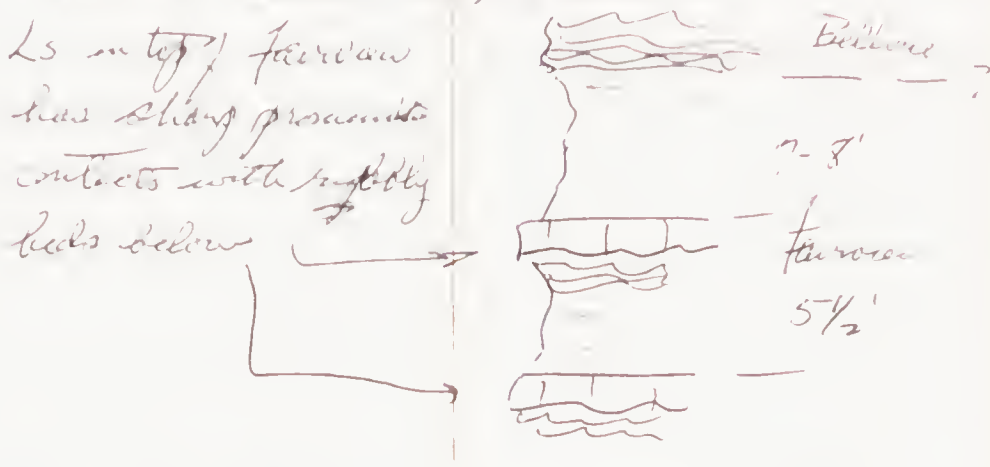 Ls on top / Fairview
has sharp prominent
contacts with rubbly
beds below
Bellevue
?
7-8'
Fairview
5 1/2'